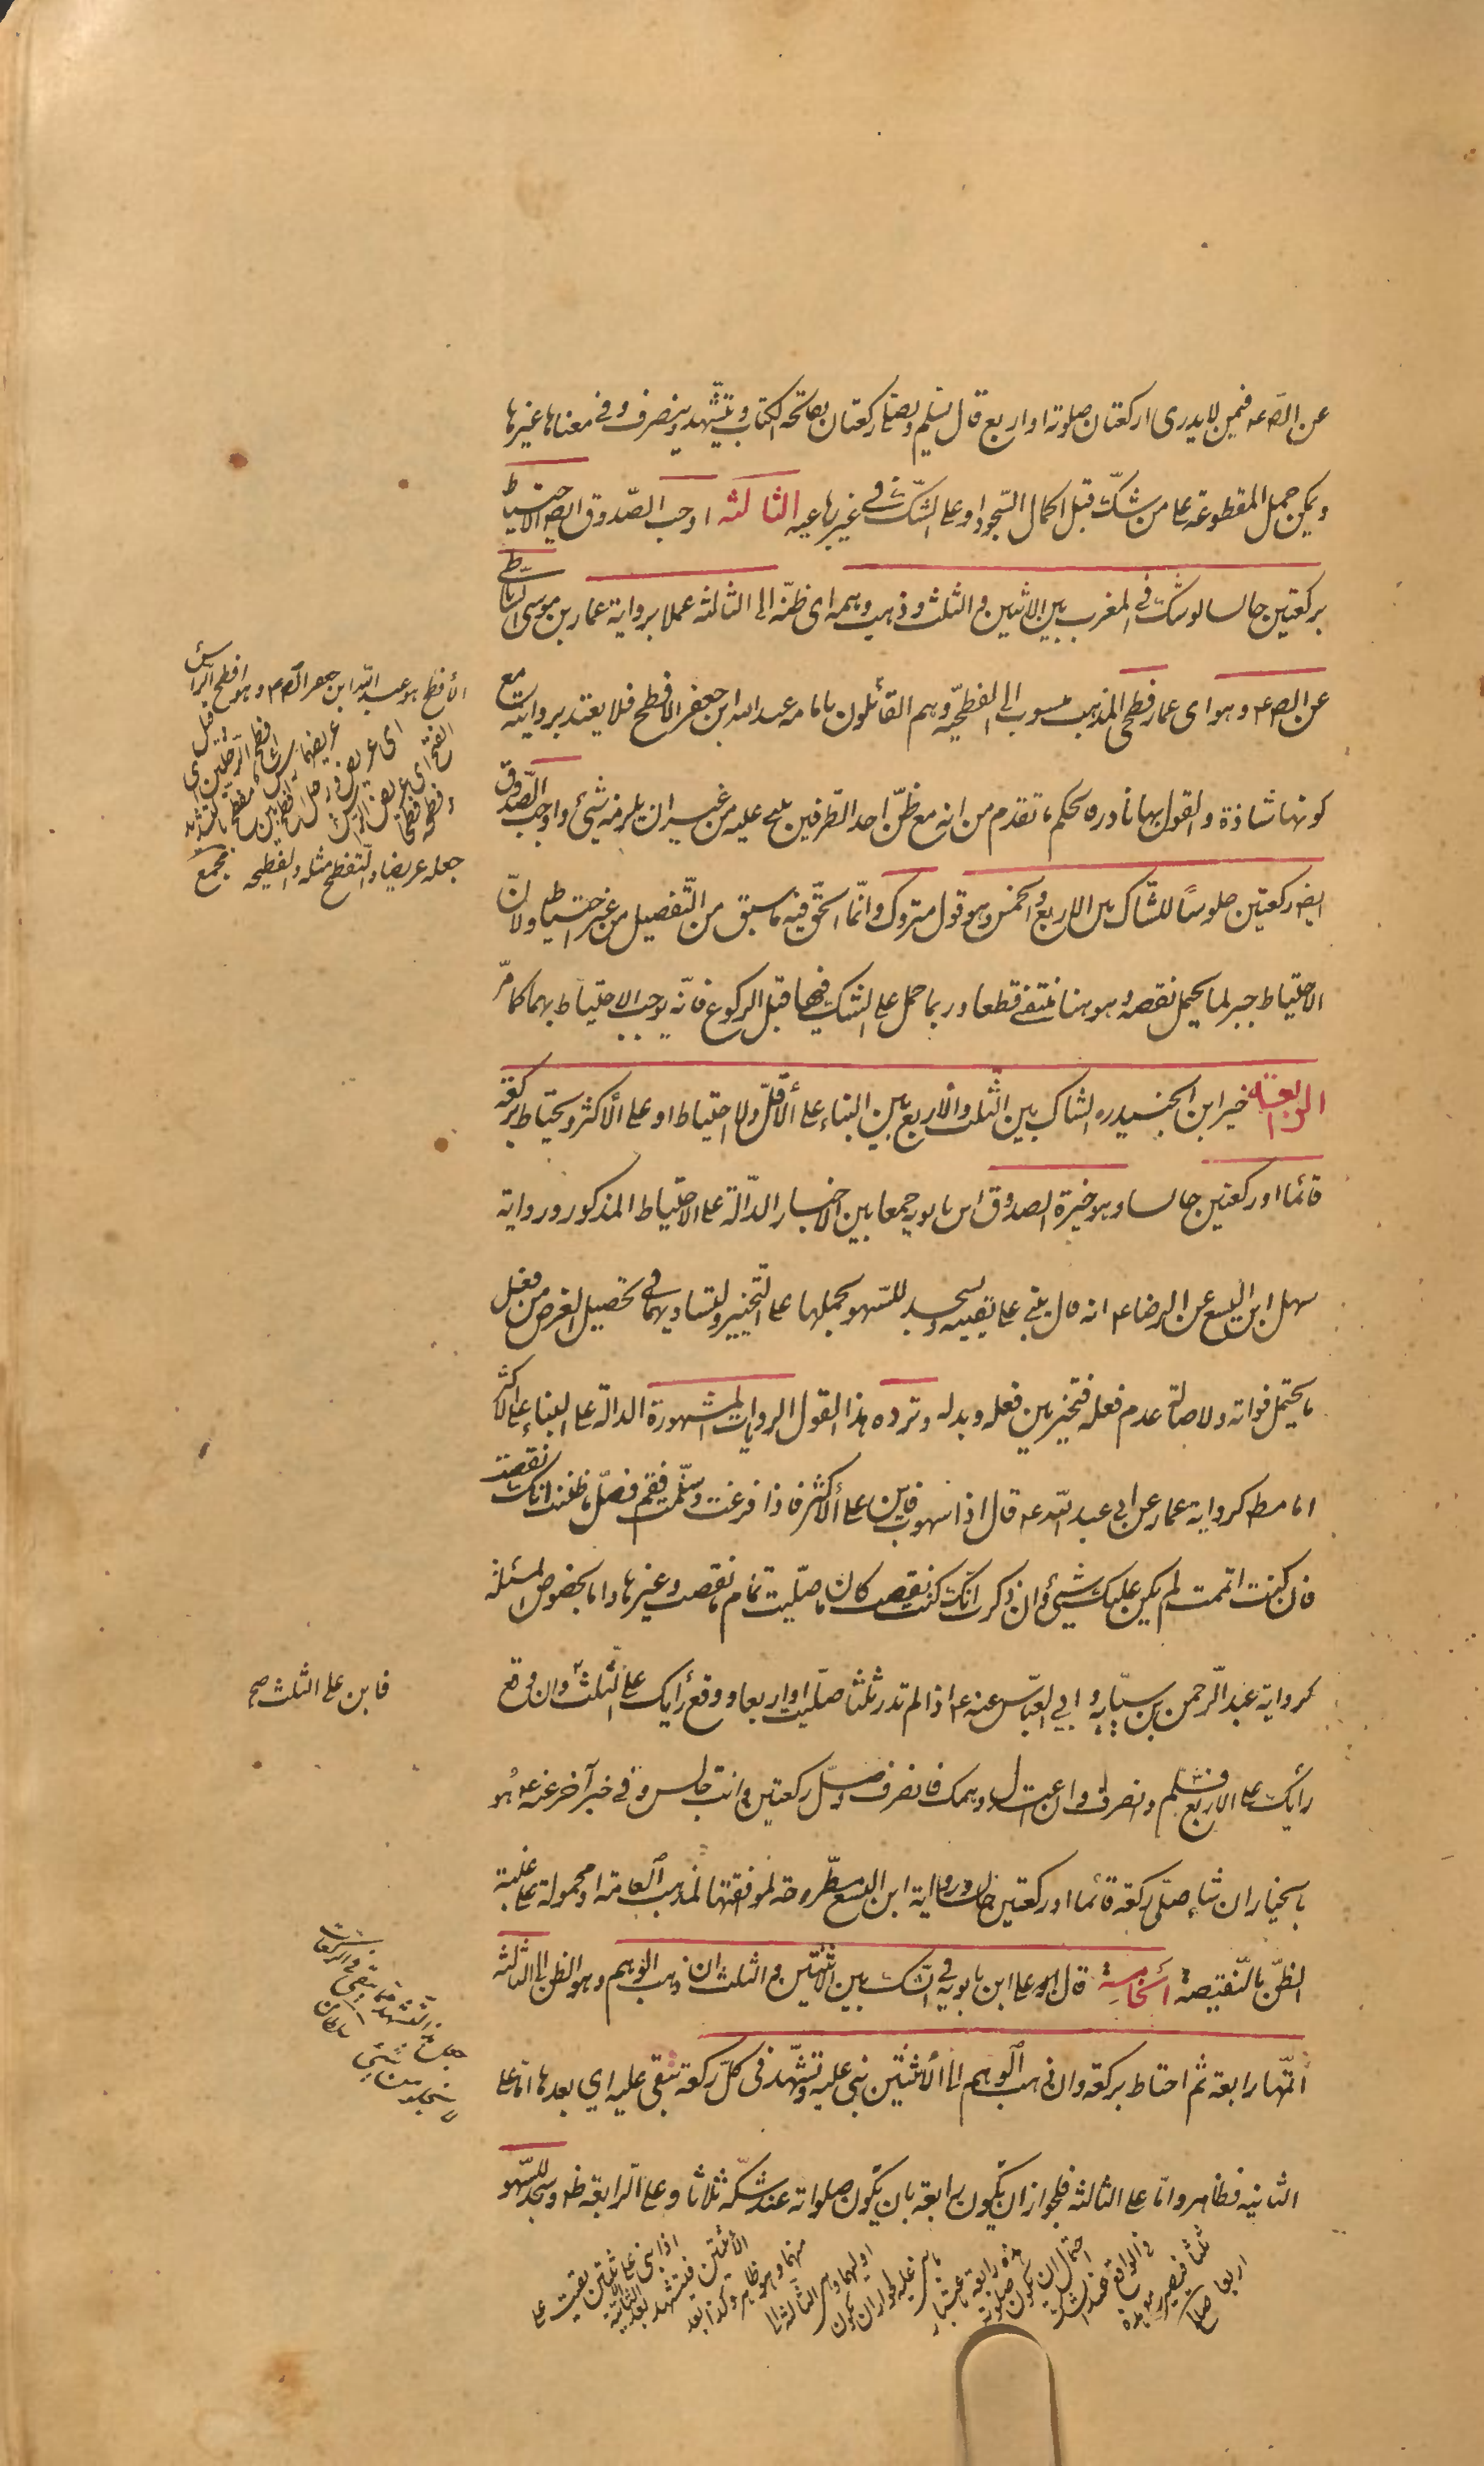 عن الص ع فيمن لا يدرى اركعتان صلوته او اربع قال يسلم ويصلى ركعتان بفاتحة الكتاب ويتشهد وينصرف وفى معناها غيرها
ويمكن حمل المقطوعة على من شك قبل اكمال السجود او على الشك فى غير رباعية الثالثة اوجب الصدوق ايض الاحتياط
بركعتين جالسا لو شك فى المغرب بين الاثنين والثلث وذهب وهمه اى ظنه الى الثالثة عملا برواية عمار بن موسى الساباطى
عن الص ع وهو اى عمار فطحى المذهب منسوب الى الفطحيّة وهم القائلون بامامه عبد الله ابن جعفر الافطح فلا يعتد بروايته مع
كونها شاذة والقول بها نادره يحكم ما تقدم من انه مع ظنّ احد الطرفين يبنى عليه من غير ان يلزمه شئ واوجب الصدوق
ايض ركعتين جلوسًا للشاك بين الاربع والخمس وهو قول متروك وانّما الحق فيه ما سبق من التفصيل من غير احتياط ولانّ
الاحتياط جبر لما يحتمل نقصه وهو هنا منتفى قطعا وربما حمل على الشك فيها قبل الركوع فانّه يوجب الاحتياط بهما كما مرّ
الرابعة خير ابن الجنيد ره الشاك بين الثلث والاربع بين البناء على الأقلّ ولا احتياط او على الأكثر ويحتاط بركعة
قائما او ركعتين جالسا وهو خيرة الصدوق ابن بابويه جمعا بين الاخبار الدّالة على الاحتياط المذكور ورواية
سهل ابن اليسع عن الرضا ع انه قال يبنى على يقينه ويسجد للسهو بحملها على التخيير ولتساويهما فى تحصيل الغرض من فعل
ما يحتمل فواته ولاصالة عدم فعله فتخير بين فعله وبدله وترده هذا القول الروايات المشهورة الدالة على البناء على الاكثر
اما مط كرواية عمار عن ابى عبد الله ع قال اذا سهوت فابن على الأكثر فاذا فرغت وسلّمت فقم فصلّ ما ظننت انك نقصت
فان كنت اتممت لم يكن عليك شئ وان ذكرت انك كنت نقصت كان ما صلّيت تمام ما نقصت وغيرها واما بخصوص المسئلة
كرواية عبد الرّحمن بن سيّابه وابى العبّاس عنه ع اذا لم تدر ثلثا صلّيت او اربعا ووقع رأيك على الثلث وان وقع
رأيك على الاربع فسلّم وانصرف وان اعتدل وهمك فانصرف وصلّ ركعتين وانت جالس وفى خبر آخر عنه ع هو
بالخيار ان شاء صلّى ركعة قائما او ركعتين جالسا ورواية ابن اليسع مطّروحة لموافقتها لمذهب العامة او محمولة على غلبة
الظنّ بالنّقيصة الخامسة قال على ابن بابويه فى الشك بين الاثنتين والثلث ان ذهب الوهم وهو الظن الى الثالثة
أتمّها رابعة ثم احتاط بركعة وان ذهب الوهم الى الأثنتين بنى عليه وتشهّد فى كلّ ركعة تبقى عليه اي بعدها اما على
الثانيه فظاهر وامّا على الثالثة فلجواز ان يكون رابعة بان يكون صلواته عند شكّه ثلاثا وعلى الرابعة ظ وسجد للسّهو
الأفطح هو عبد الله ابن جعفر الص ع وهو افطح الرأس
جعله عريضا والتفطح مثله والفطيحه مجمع
فابن على الثلث صح